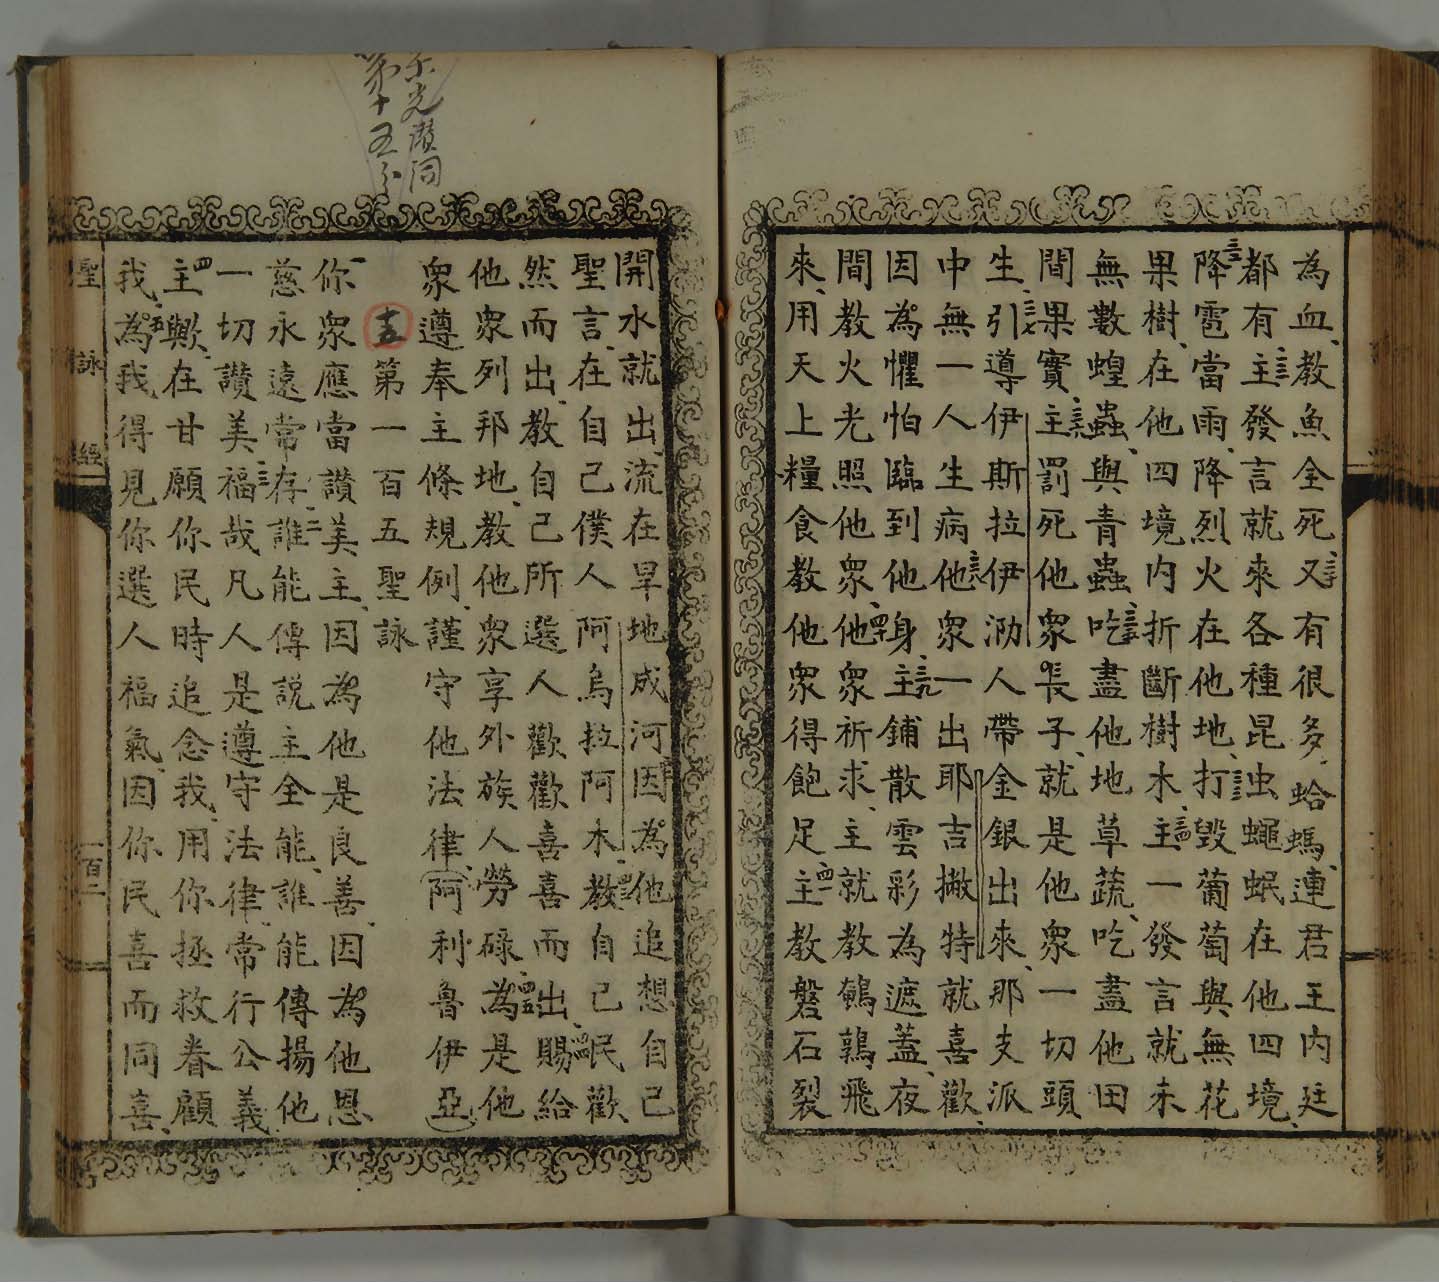 為血、教魚全死又有很多蛤螞、連君王內廷
都有、主發言就來各種昆虫蠅蚊在他四境、
降雹當雨、降烈火在他地、打毀葡萄與無花
果樹、在他四境內折斷樹木、主一發言就來
無數蝗蟲、與青蟲吃盡他地草蔬、吃盡他田
間果實、主罰死他眾長子、就是他眾一切頭
生、引導伊斯拉伊泐人帶金銀出來、那支派
中無一人生病、他眾一出耶吉撇特就喜歡、
因為懼怕臨到他身、主鋪散雲彩為遮蓋、夜
間教火光照他眾、他眾祈求、主就教鵪鶉飛
來、用天上糧食教他眾得飽足、主教磐石裂
開水就出、流在旱地成河因為他追想自己
聖言、在自己僕人阿烏拉阿木、教自己民歡
然而出、教自己所選人歡歡喜喜而出、賜給
他眾列邦地、教他眾享外族人勞碌、為是他
眾遵奉主條規例、謹守他法律、阿利魯伊亞
第一百五聖詠
你眾應當讚美主、因為他是良善、因為他恩
慈永遠常存、誰能傳説主全能、誰能傳揚他
一切讚美、福哉凡人是遵守法律、常行公義、
主歟、在甘願你民時追念我、用你拯救眷顧
我、為我得見你選人福氣、因你民喜而同喜、
聖詠經
一百二